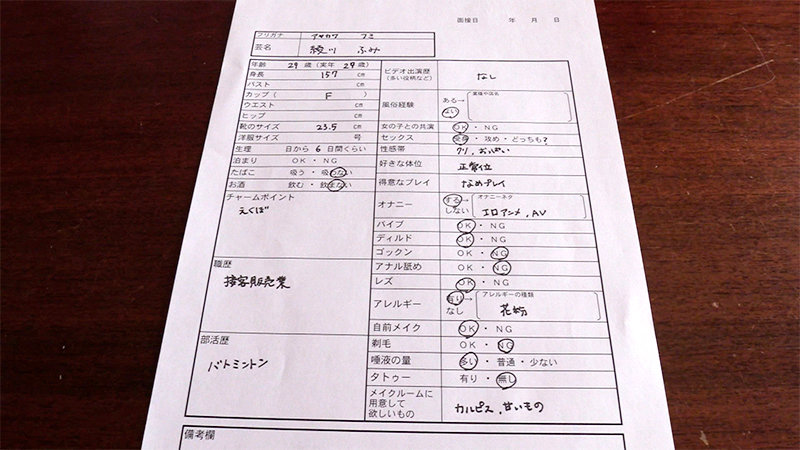 面接日 年 月 日
フリガナ アヤカワ フミ
芸名 綾川 ふみ
年齢 29 歳 (実年 29 歳)
身長 157 cm
バスト cm
カップ ( F )
ウエスト cm
ヒップ cm
靴のサイズ 23.5 cm
洋服サイズ 号
生理 日から 6 日間くらい
泊まり OK ・ NG
たばこ 吸う ・ 吸わない
お酒 飲む ・ 飲まない
チャームポイント
えくぼ
職歴
接客販売業
部活歴
バトミントン
ビデオ出演歴
(多い役柄など)
なし
風俗経験
ある→
ない
業種や店名
女の子との共演 OK ・ NG
セックス 受身 ・ 攻め ・ どっちも?
性感帯 クリ、おっぱい
好きな体位 正常位
得意なプレイ なめプレイ
オナニー
する→
しない
オナニーネタ
エロアニメ、AV
バイブ OK ・ NG
ディルド OK ・ NG
ゴックン OK ・ NG
アナル舐め OK ・ NG
レズ OK ・ NG
アレルギー
有り→
なし
アレルギーの種類
花粉
自前メイク OK ・ NG
剃毛 OK ・ NG
唾液の量 多い ・ 普通 ・ 少ない
タトゥー 有り ・ 無し
メイクルームに
用意して
欲しいもの
カルピス、甘いもの
備考欄